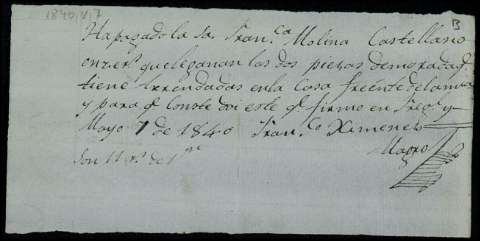 1840, V, 7
B
Ha pagado la Sa. Fran.ca Molina Castellano
once r.s que leganan las dos piezas de morada q.
tiene arrendadas en la Casa frente de la
y para q.e conste doi este q.e firmo en y
Mayo 7 de 1840 Fran.co Ximenez
Son 11 r.s de v.on